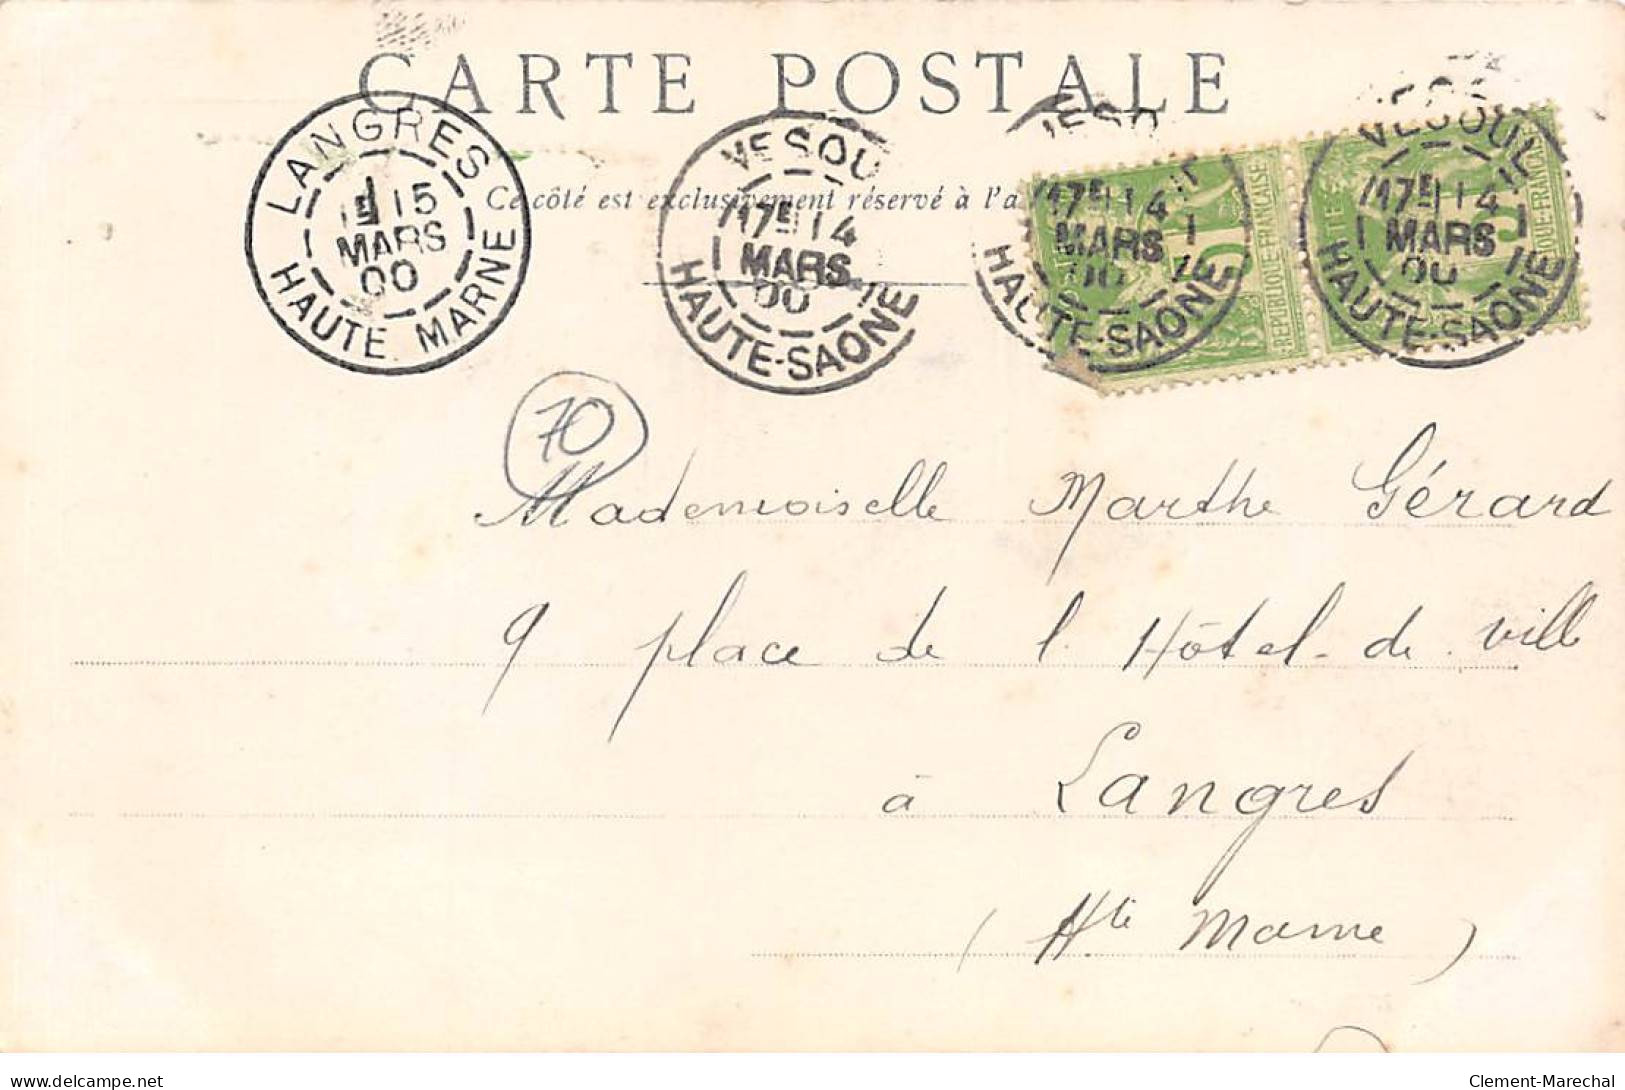 CARTE POSTALE
LANGRES
1E 15
MARS
00
HAUTE MARNE
VESOU
17E 14
MARS
00
HAUTE-SAONE
Ce côté est exclusivement réservé à l'a
17E 14
MARS
00
HAUTE-SAONE
5
REPUBLIQUE-FRANÇAISE
VESOUL
17E 14
MARS
00
HAUTE-SAONE
70
Mademoiselle Marthe Gérard
9 place de l'Hôtel-de-ville
à Langres
(Hte Marne)
delcampe.net
Clement-Marechal